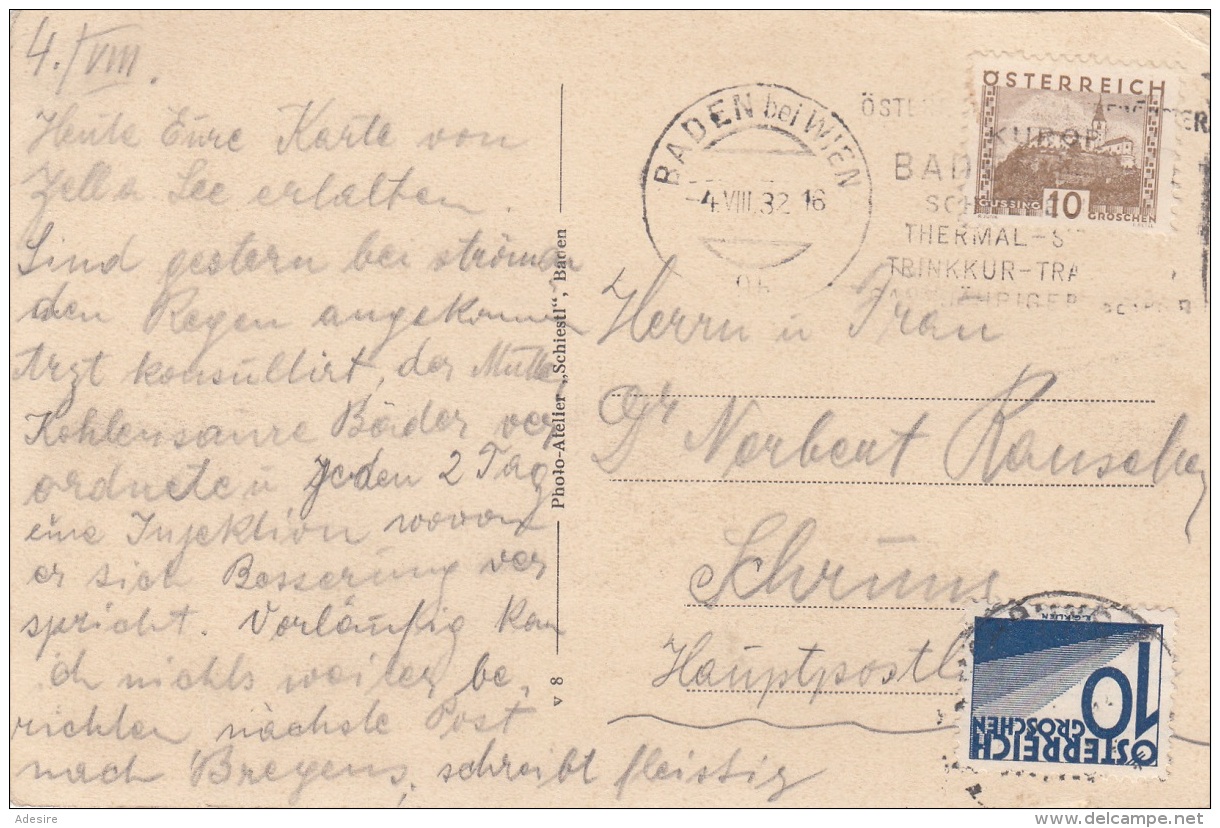 4./VIII.
Heute Eure Karte von
Zell a See erhalten.
Sind gestern bei strömen
den Regen angekommen
Arzt konsultirt, der Mutter
Kohlensaure Bäder ver
ordnete u jeden 2 Tag
eine Injektion wovon
er sich Besserung ver
spricht. Vorläufig kan
ich nichts weiter be,
richten nächste Post
nach Bregens, schreibt fleistig
Photo-Atelier „Schiestl", Baden
v 8
BADEN bei WIEN
-4.VIII.32 16
ÖSTE
KUROR
BAD
SCH
THERMAL-S
TRINKKUR-TRA
ÖSTERREICH
GÜSSING 10 GROSCHEN
Herrn u Frau
Dr Norbert Rauscher
Schruns
Hauptpostl
10
GROSCHEN
ÖSTERREICH
Adesire
delcampe.net